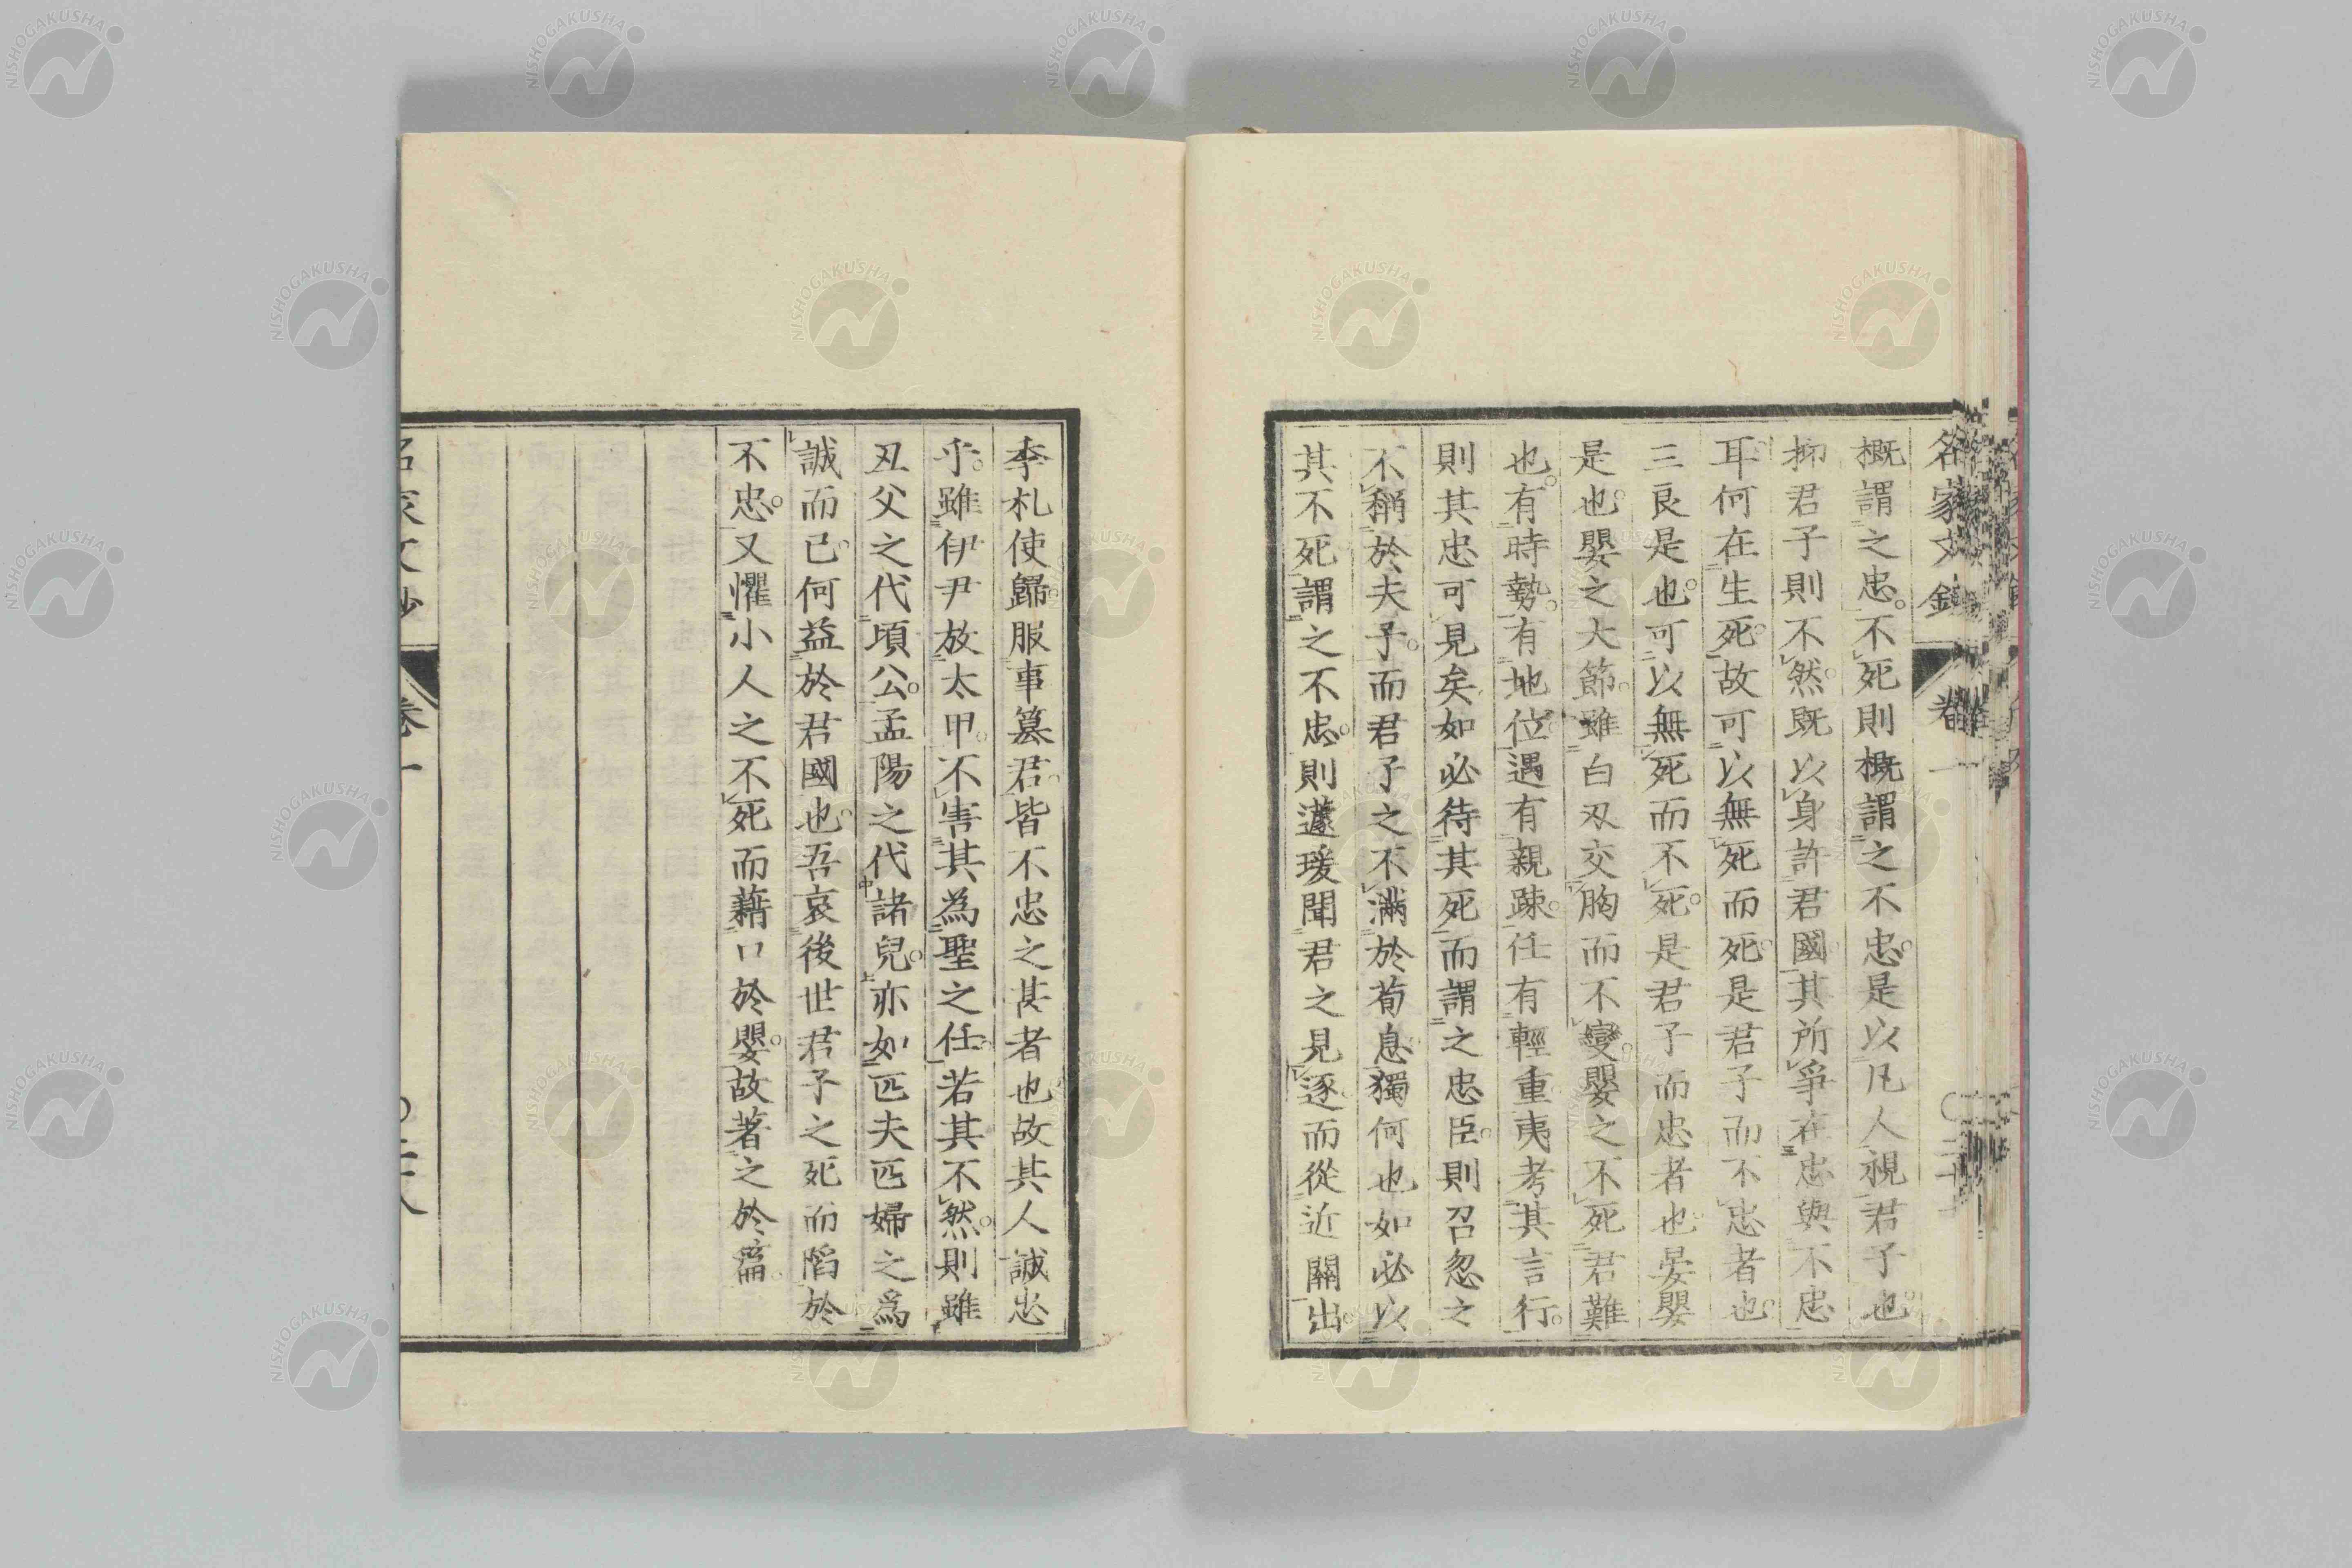 名家文鈔 卷一
概謂之忠。不死則概謂之不忠。是以凡人視君子也
抑君子則不然。既以身許君國。其所爭在忠與不忠
耳。何在生死。故可以無死而死。是君子而不忠者也。
三良是也。可以無死而不死。是君子而忠者也。晏嬰
是也。嬰之大節。雖白刃交胸而不變。嬰之不死君難
也。有時勢。有地位。遇有親疎。任有輕重。夷考其言行。
則其忠可見矣。如必待其死而謂之忠臣。則召忽之
不稱於夫子。而君子之不滿於荀息。獨何也。如必以
其不死謂之不忠。則蘧瑗聞君之見逐。而從近關出。
季札使歸。服事篡君。皆不忠之甚者也。故其人誠忠
乎。雖伊尹放太甲。不害其為聖之任。若其不然。則雖
丑父之代頃公。孟陽之代諸兒。亦如匹夫匹婦之爲
誠而已。何益於君國也。吾哀後世君子之死而陷於
不忠。又懼小人之不死而藉口於嬰。故著之於篇。
名家文鈔 卷一